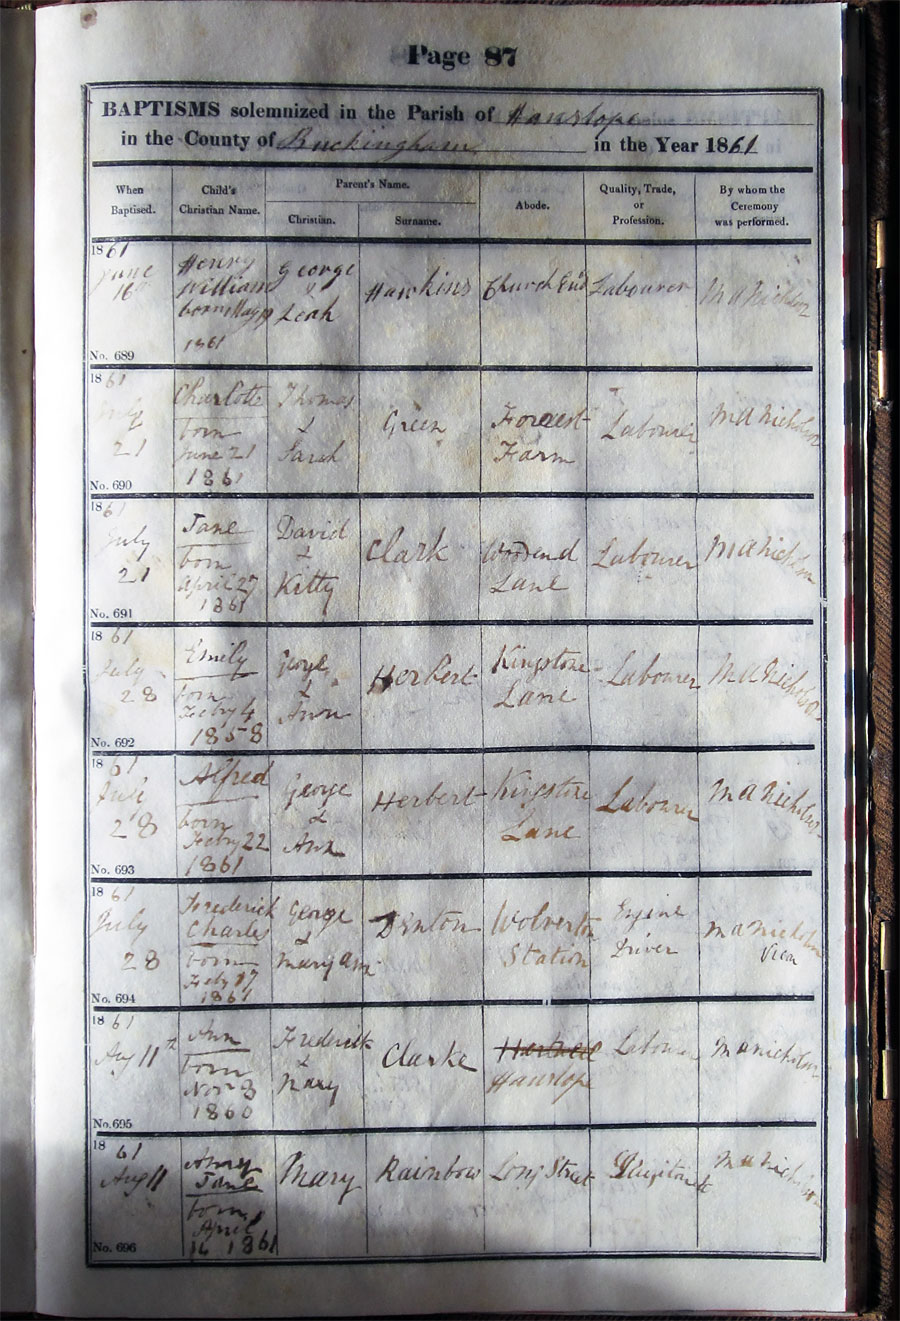 Page 87
BAPTISMS solemnized in the Parish of Hanslope
in the County of Buckingham in the Year 1861
When Baptised.
Child's Christian Name.
Parent's Name.
Christian.
Surname.
Abode.
Quality, Trade, or Profession.
By whom the Ceremony was performed.
1861
June
16
No. 689
Henry
William
born May 19
1861
George
&
Leah
Hawkins
Church End
Labourer
M A Nicholson
1861
July
21
No. 690
Charlotte
born
June 21
1861
Thomas
&
Sarah
Green
Forest
Farm
Labourer
M A Nicholson
1861
July
21
No. 691
Jane
born
April 27
1861
David
&
Kitty
Clark
Woodend
Lane
Labourer
M A Nicholson
1861
July
28
No. 692
Emily
born
Feby 4
1858
George
&
Ann
Herbert
Kingstone
Lane
Labourer
M A Nicholson
1861
July
28
No. 693
Alfred
born
Feby 22
1861
George
&
Ann
Herbert
Kingstone
Lane
Labourer
M A Nicholson
1861
July
28
No. 694
Frederick
Charles
born
Feby 17
1861
George
&
Mary Ann
Denton
Wolverton
Station
Engine
Driver
M A Nicholson
Vicar
1861
Aug 11th
No. 695
Ann
born
Novr 3
1860
Frederick
&
Mary
Clarke
Hartwell
Hanslope
Labourer
M A Nicholson
1861
Aug 11
No. 696
Jane
born
April
16 1861
Mary
Rainbow
Long Street
M A Nicholson